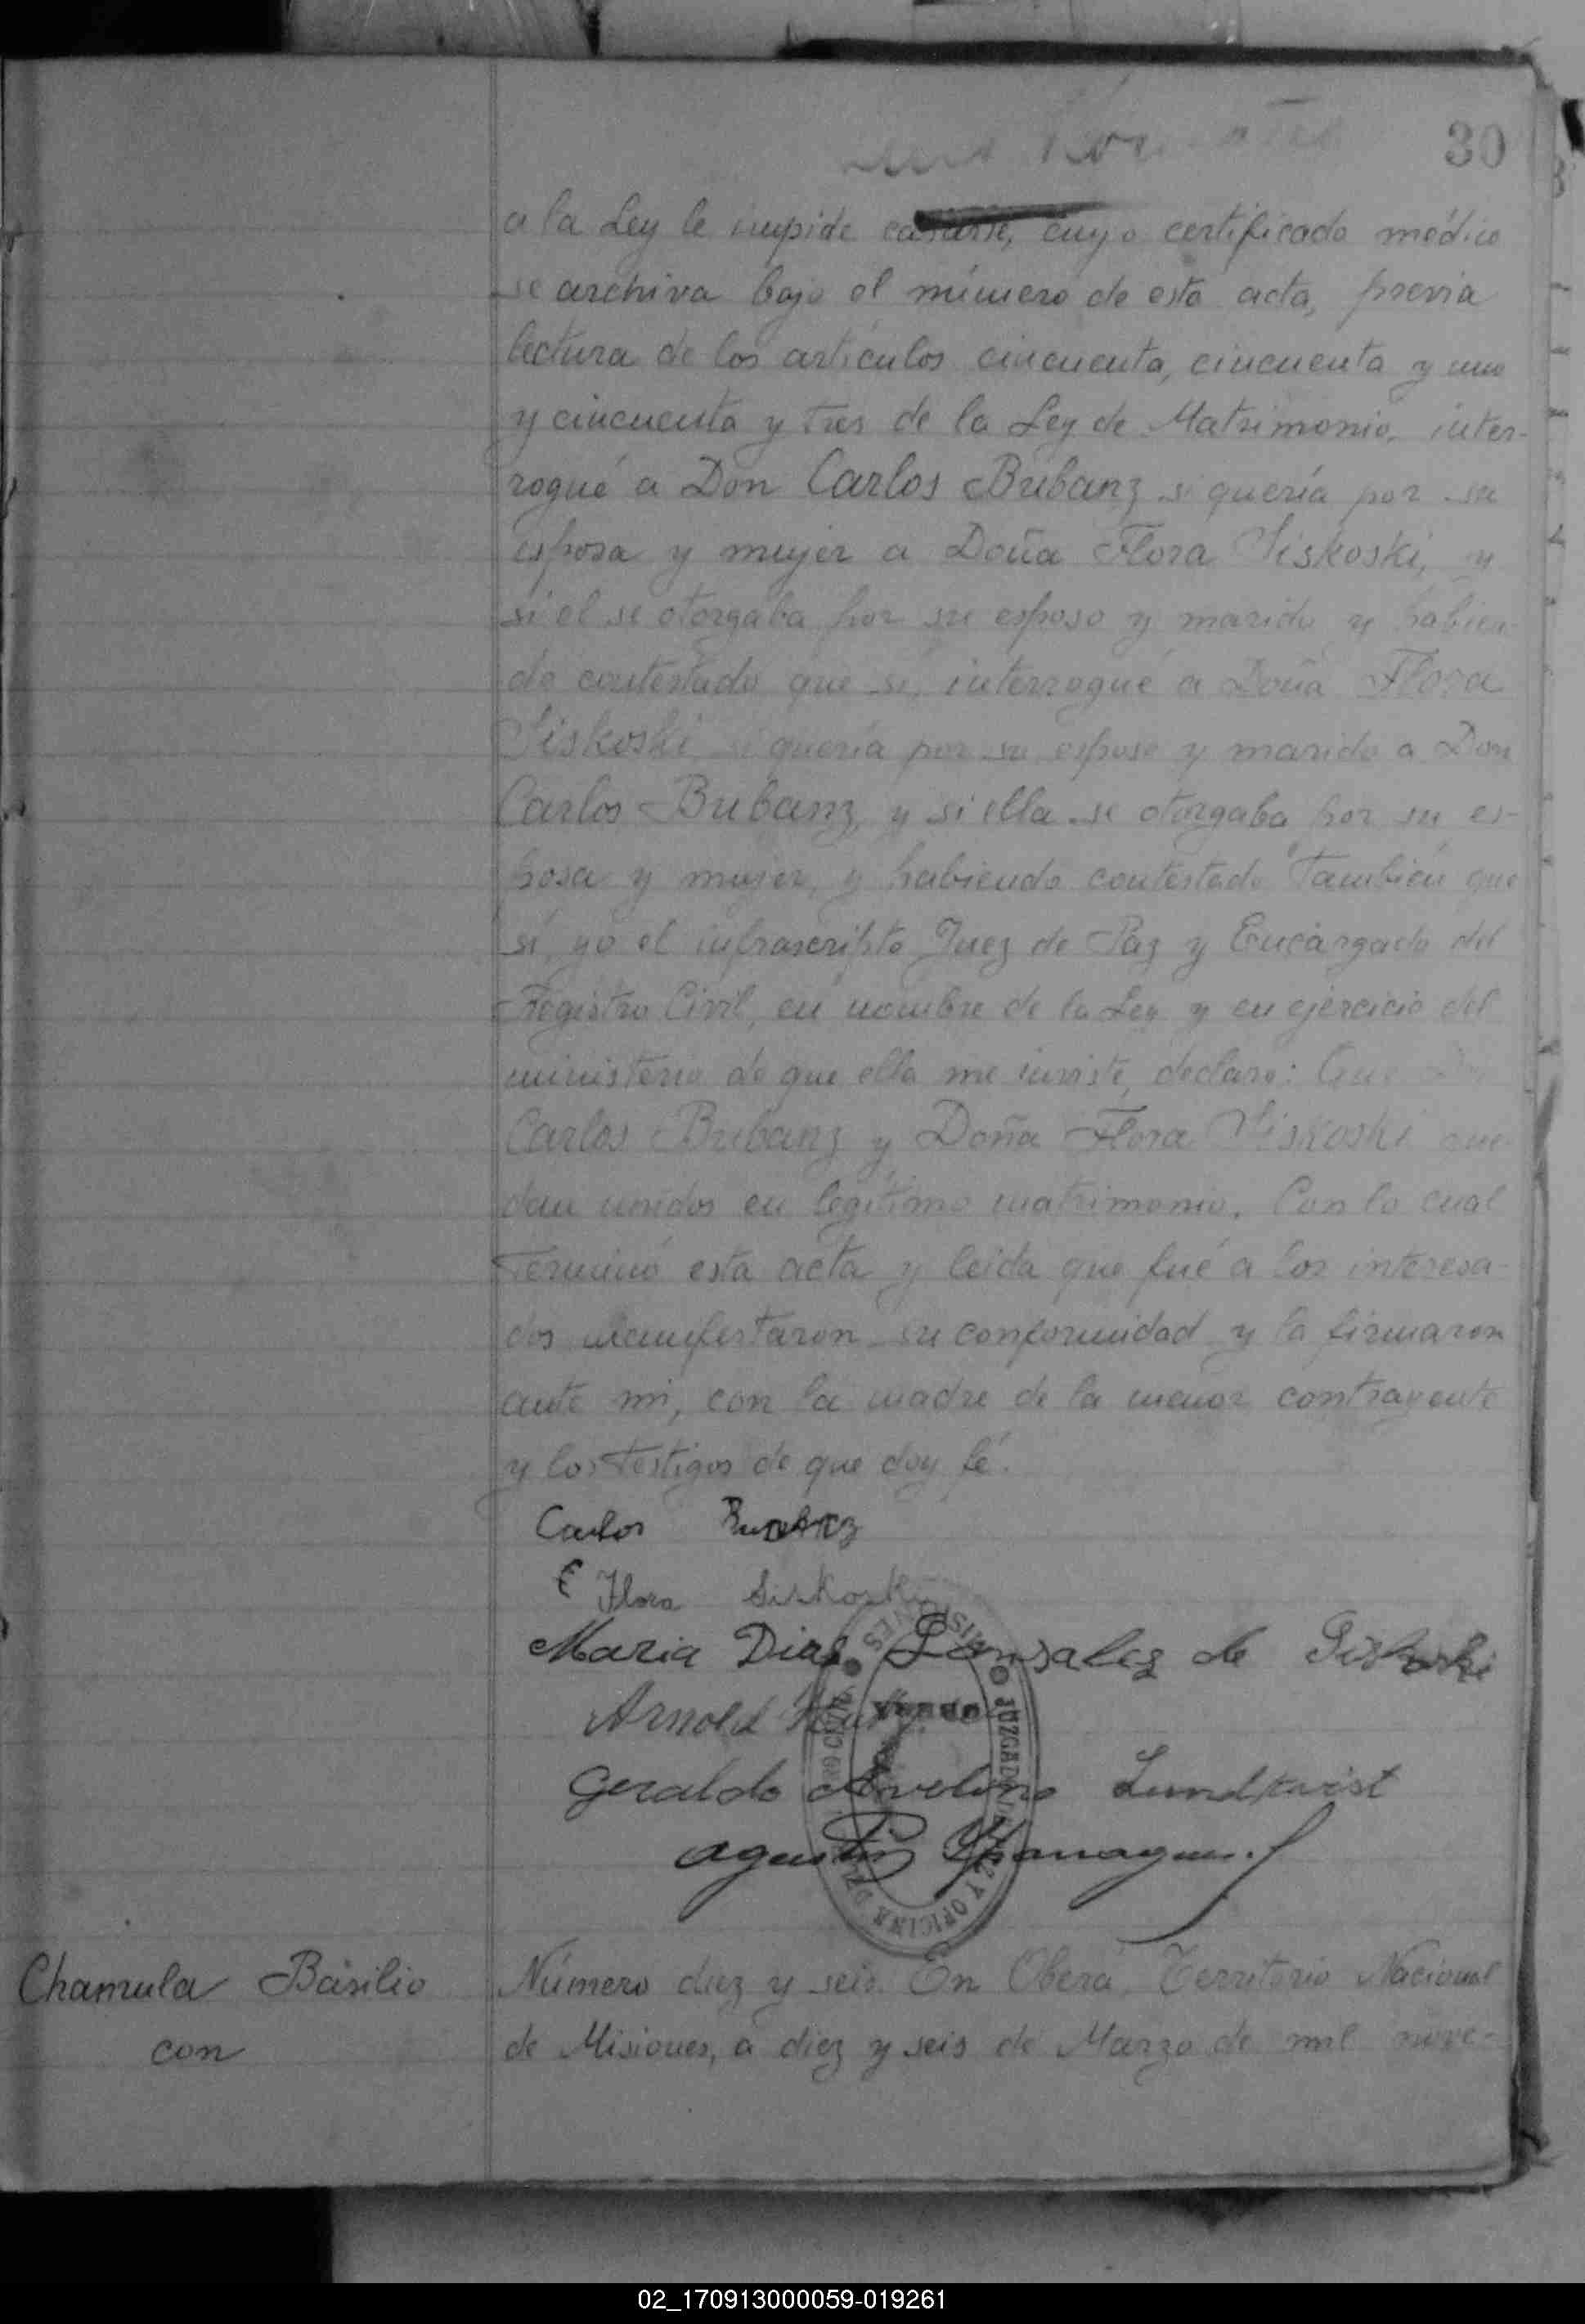 30
a la Ley le impide casarse, cuyo certificado médico
se archiva bajo el número de esta acta, previa
lectura de los artículos cincuenta, cincuenta y uno
y cincuenta y tres de la Ley de Matrimonio, inter-
rogué a Don Carlos Bubanz si quería por su
esposa y mujer a Doña Flora Siskoski, y
si el se otorgaba por su esposo y marido y habien-
do contestado que si, interrogué a Doña Flora
Siskoski si quería por su esposo y marido a Don
Carlos Bubanz, y si ella se otorgaba por su es-
posa y mujer, y habiendo contestado también que
sí, yo el infrascripto Juez de Paz y Encargado del
Registro Civil, en nombre de la Ley y en ejercicio del
ministerio de que ella me inviste, declaro: Que
Carlos Bubanz y Doña Flora Siskoski que-
dan unidos en legítimo matrimonio. Con lo cual
terminó esta acta y leida que fué a los interesa-
dos manifestaron su conformidad y la firmaron
ante mi, con la madre de la menor contrayente
y los testigos de que doy fé.
Carlos
Flora Siskoski
Maria Dias Gonsalez de Siskoski
Arnold
Geraldo Avelino Lundkvist
Agustin
MISIONES
JUZGADO DE PAZ Y OFICINA DEL REGISTRO CIVIL
Chamula Basilio
con
Número diez y seis. En Oberá, Territorio Nacional
de Misiones, a diez y seis de Marzo de mil nove-
02_170913000059-019261